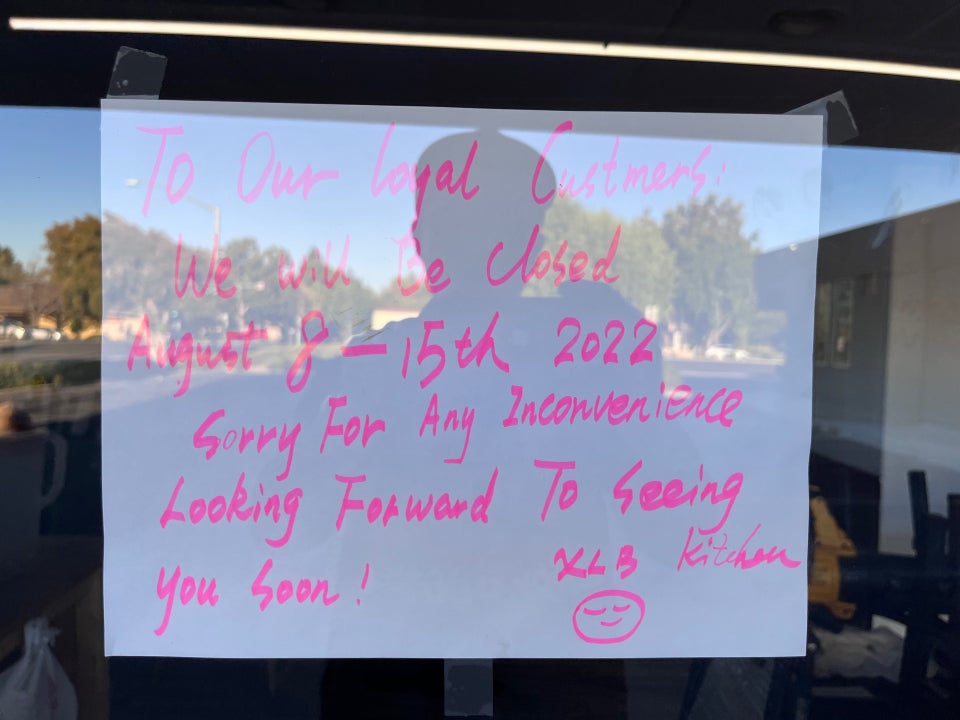 To Our Loyal Custmers:
We will Be Closed
August 8 - 15th 2022
Sorry For Any Inconvenience
Looking Forward To Seeing
you Soon!
XLB Kitchen